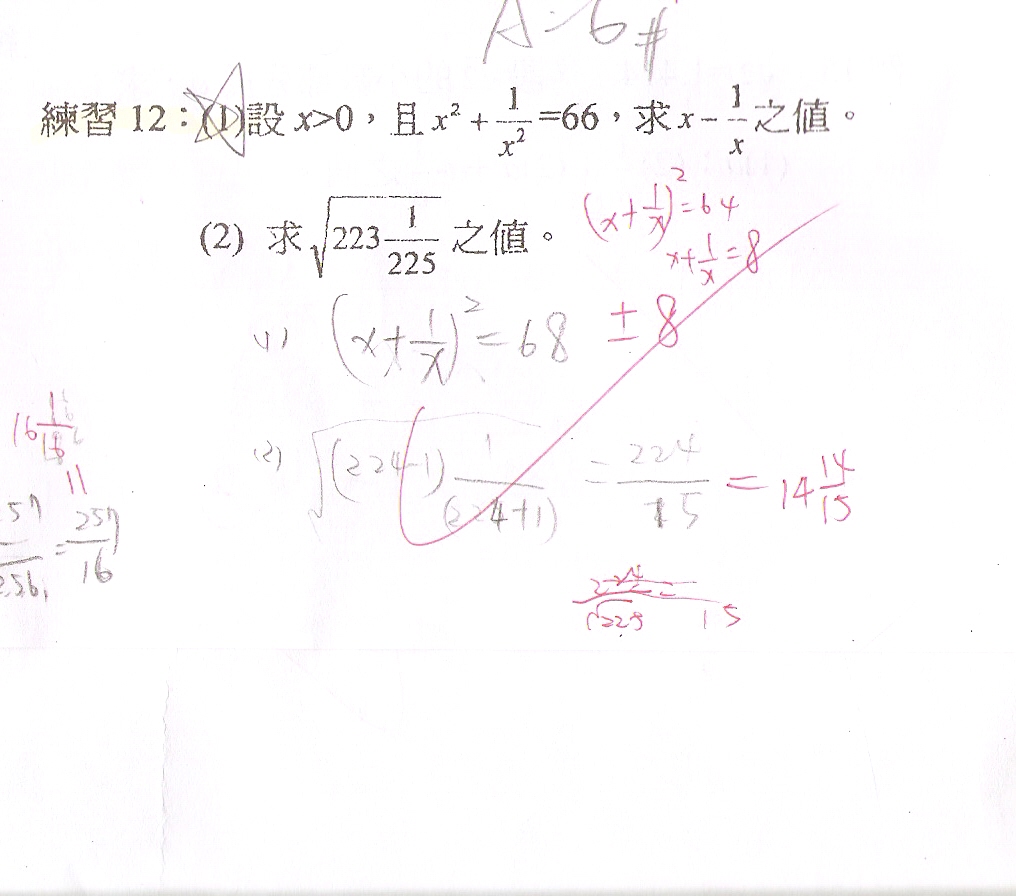 A=6#
練習 12：(1)設 x>0，且 x² + 1/x² =66，求 x− 1/x 之值。
(2) 求 √(223 1/225) 之值。
(x+1/x)²=64
x+1/x=8
(1) (x+1/x)²=68 ±8
16 1/16
(2) √((224-1) 1/(224+1)) = 224/15 = 14 14/15
=257/16
15